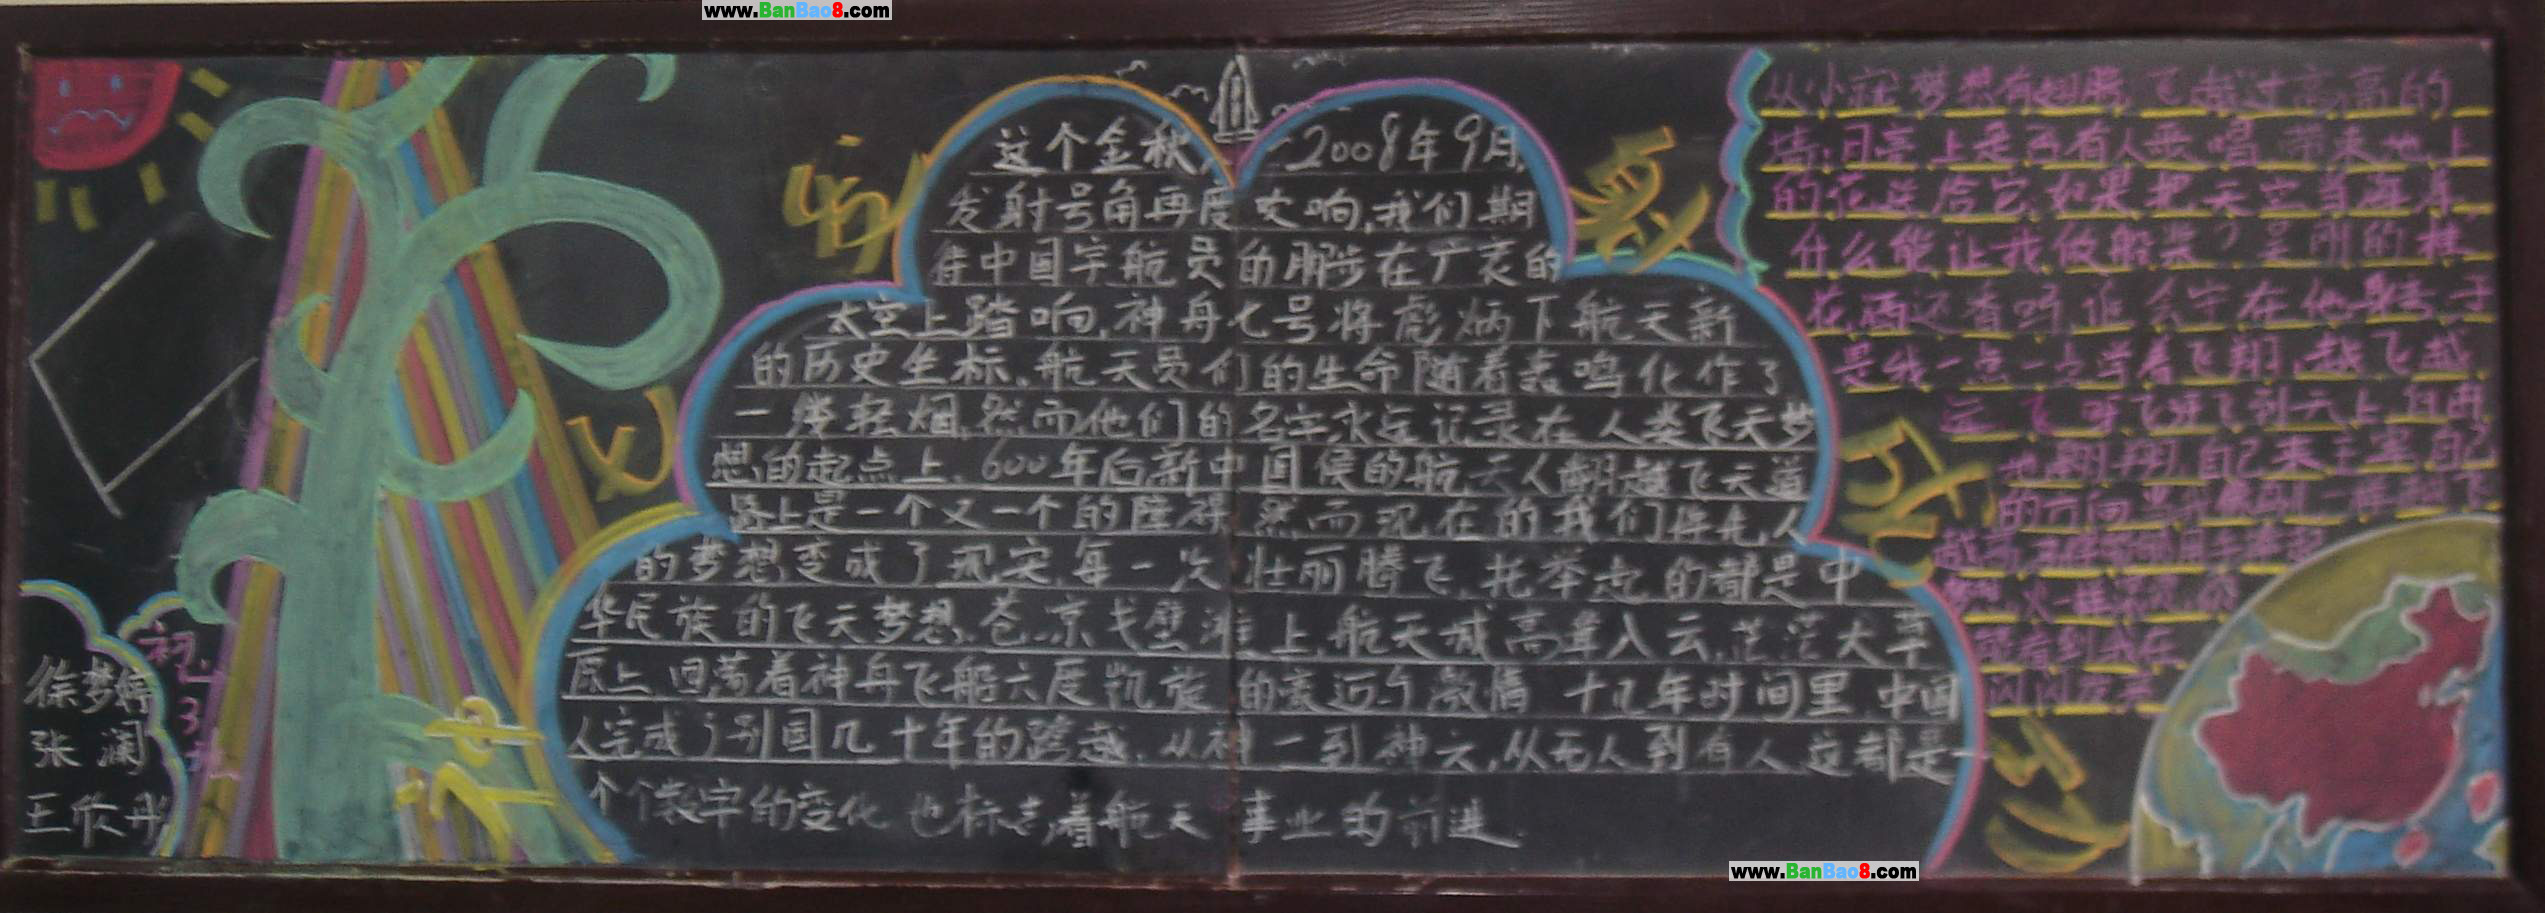 www.BanBao8.com
这个金秋,2008年9月,
发射号角再度吹响,我们期
待中国宇航员的脚步在广袤的
太空上踏响,神舟七号将彪炳下航天新
的历史坐标,航天员们的生命随着轰鸣化作了
一缕轻烟,然而他们的名字永远记录在人类飞天梦
想的起点上,600年后新中国的航天人翻越飞天道
路上是一个又一个的障碍然而现在的我们
的梦想变成了现实,每一次壮丽腾飞,托举起的都是中
华民族的飞天梦想,苍凉戈壁滩上,航天城高耸入云,茫茫大草
原上回荡着神舟飞船六度凯旋的豪迈与激情十几年时间里,中国
人完成了别国几十年的跨越,从神一到神六,从无人到有人这都是一
个个数字的变化也标志着航天事业的前进.
从小就梦想有翅膀飞越过高高的
墙;月亮上是否有人歌唱带来地上
的花送给它,如果把天空当海洋,
什么能让我做船桨?吴刚的桂
花酒还香吗,谁会守在他身旁,于
是我一点一点学着飞翔,越飞越
远飞呀飞呀飞到云上自由
地翱翔,自己来主宰自己
的方向
看到我在
闪闪发亮
初二3班
徐梦婷
张澜
王欣彤
www.BanBao8.com